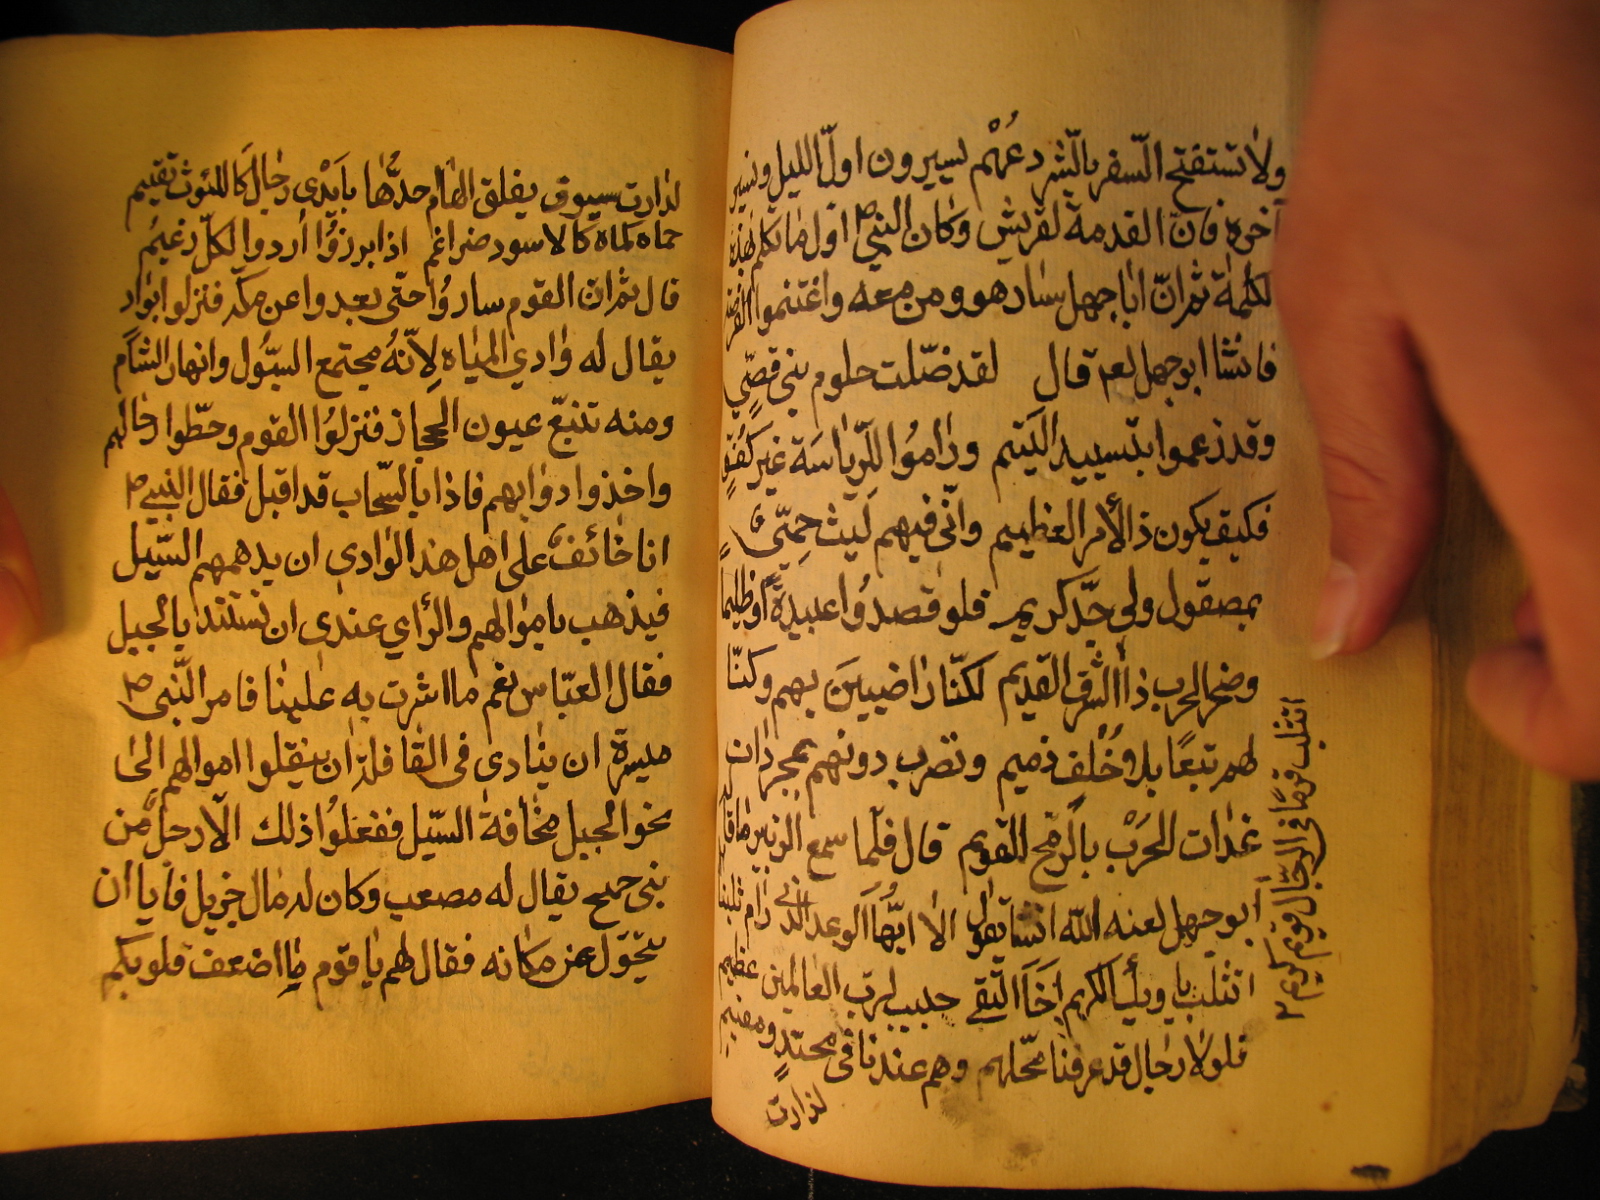 ولا تستفتح السفر بالشر دعهم يسيرون اول الليل ونسير
آخره فان القدمة لقريش وكان النبي ص اول ما تكلم بهذه
لكلمة ثم ان ابا جهل سار هو ومن معه واغتنموا الفرصة
فانشا ابو جهل لعـ قال لقد ضلت حلوم بني قصي
وقد زعموا بتسييد اليتيم وراموا للرياسة غير كفؤ
فكيف يكون ذا الأمر العظيم واني فيهم ليث حمي
بمصقول ولي جد كريم فلو قصدوا عبيدة او ظليما
وصخر الحرب ذا الشرف القديم لكنا راضيين بهم وكنا
لهم تبعا بلا خلف ذميم ونضرب دونهم بمجردات
غدات الحرب بالرمح القويم قال فلما سمع الزبير ما قال
ابو جهل لعنه الله انشا يقول الا ايها الوغد الذي رام ثلبنا
اتثلب يا ويلك الكريم اخا التقى حبيب لرب العالمين عظيم
فلولا رجال قد عرفنا محلهم وهم عندنا في محتد ومقيم
لدارت
اتثلب قرما في الرجال قويم كريم
لدارت سيوف يفلق الهام حدها بايدي رجال كالليوث تقيم
حماه كماه كالاسود ضراغم اذا برزوا أردوا لكل زعيم
قال ثم ان القوم ساروا حتى بعدوا عن مكة فنزلوا بواد
يقال له وادي المياه لانه مجتمع السيول وانهار الشام
ومنه تنبع عيون الحجاز فنزلوا القوم وحطوا رحالهم
واخذوا دوابهم فاذا بالسحاب قد اقبل فقال النبي ص
انا خائف على اهل هذ الوادي ان يدهمهم السيل
فيذهب باموالهم والرأي عندي ان نستند بالجبل
فقال العباس نعم ما اشرت به علينا فامر النبي ص
ميسرة ان ينادي في القافلة ان ينقلوا اموالهم الى
نحو الجبل مخافة السيل ففعلوا ذلك الا رجل من
بني جمح يقال له مصعب وكان له مال جزيل فابا ان
يتحول عن مكانه فقال لهم يا قوم ما اضعف قلوبكم